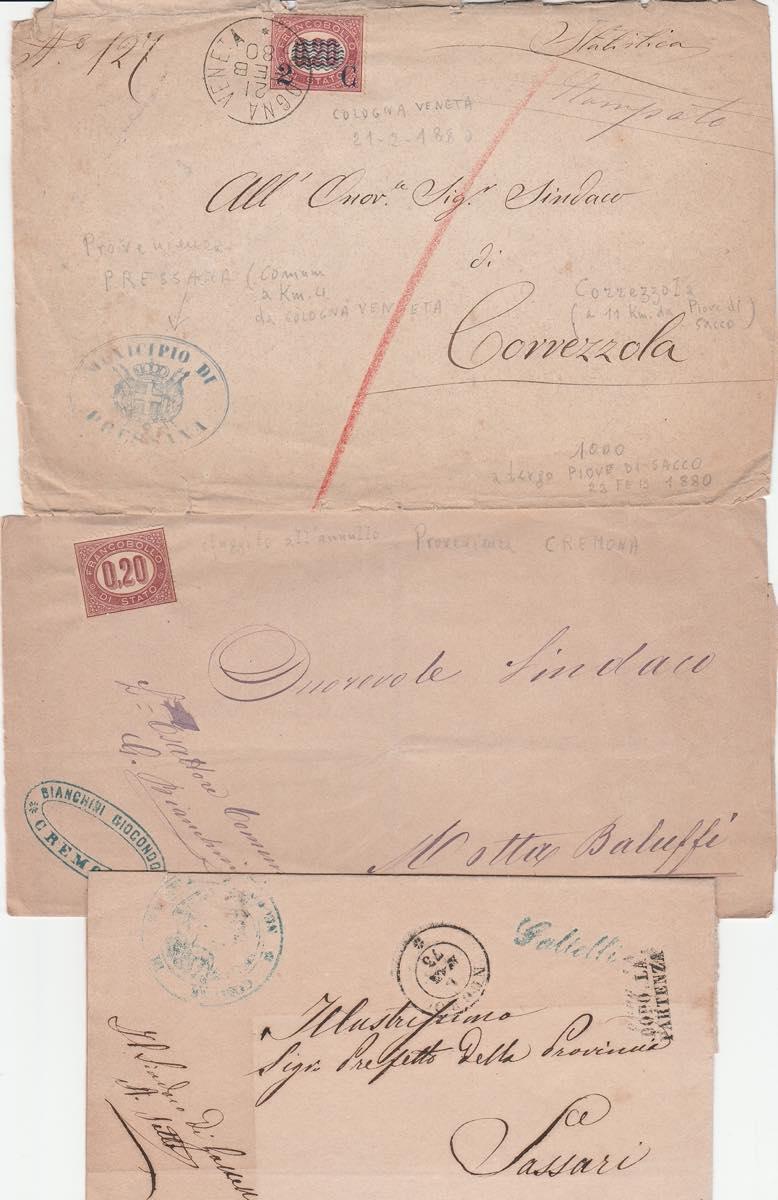 N° 127
COLOGNA VENETA
21 FEB 80
FRANCOBOLLO
0,20
2 C
DI STATO
Statistica
Stampato
COLOGNA VENETA
21-2-1880
All' Onov.le Sig.r Sindaco
di
Correzzola
Provenienza
PRESSANA (Comune
a Km. 4
da COLOGNA VENETA
Correzzola
(a 11 Km. da Piove di
Sacco)
MUNICIPIO DI
PRESSANA
1000
a tergo PIOVE DI SACCO
23 FEB 1880
FRANCOBOLLO
0,20
DI STATO
sfuggito all'annullo
Provenienza CREMONA
Onorevole Sindaco
L'Esattore Comun
G. Bianchini
BIANCHINI GIOCONDO
CREMO
Motta Baluffi
73
Galtelli
DOPO LA
PARTENZA
Illustrissimo
Sigr. Prefetto della Provincia
Sassari
Il Sindaco di Galtell